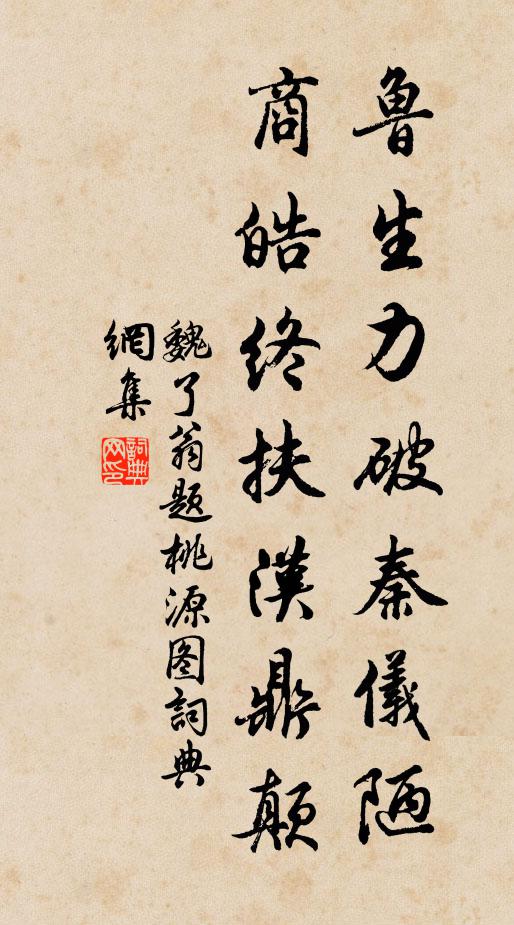 鲁生力破秦儀陋
商皓终扶漢鼎颠
魏了翁题桃源图詞典
網集
詞典
网印